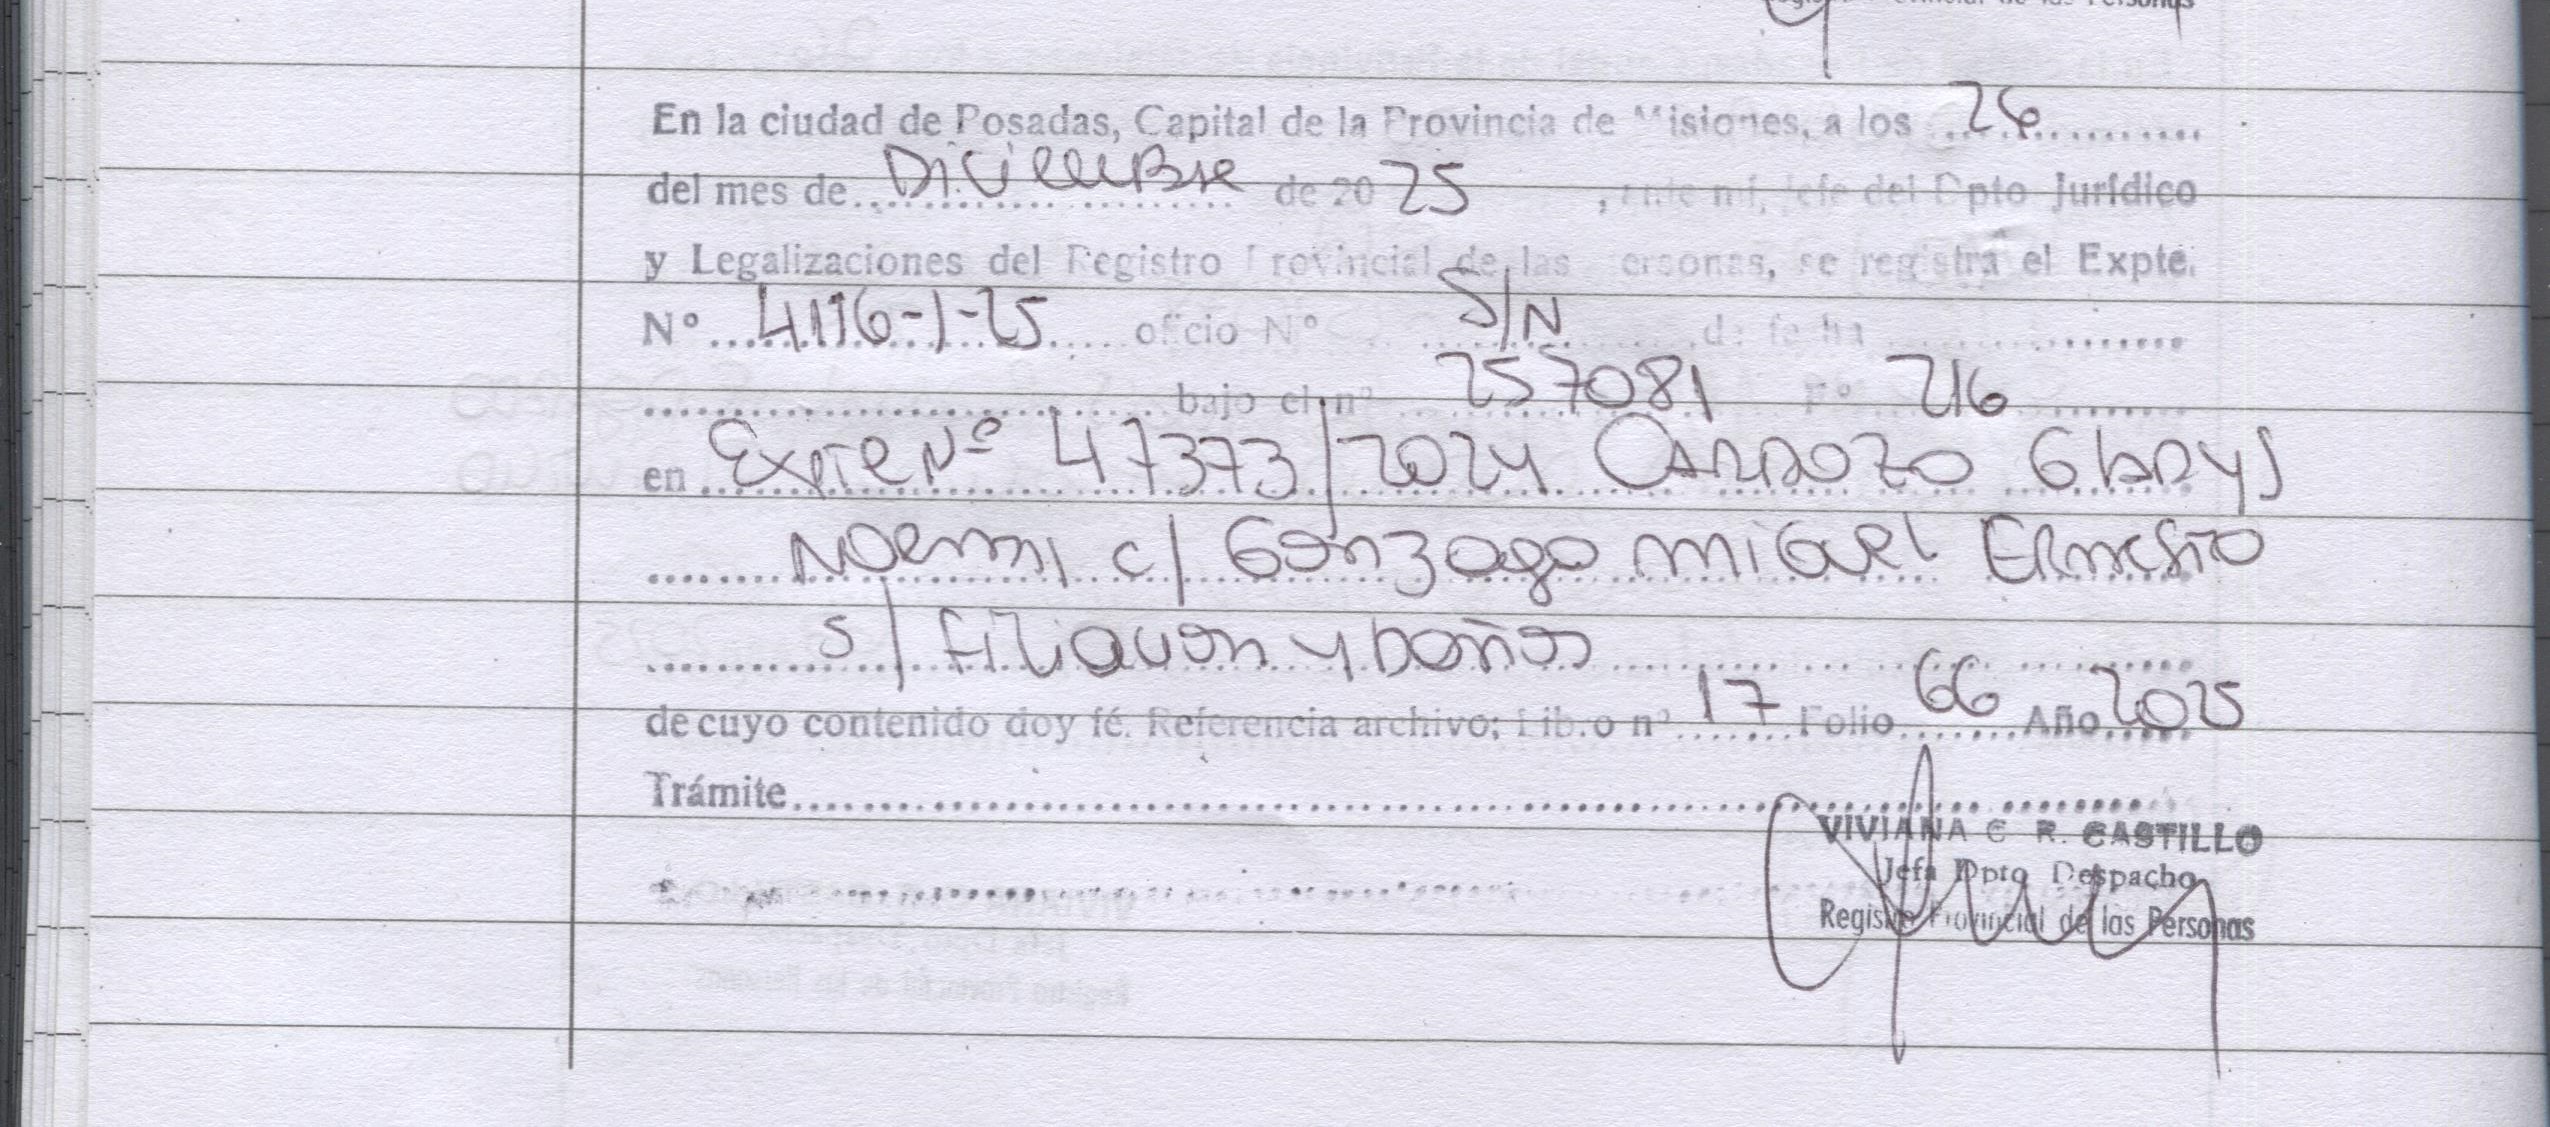 Registro Provincial de las Personas
En la ciudad de Posadas, Capital de la Provincia de Misiones, a los 26
del mes de Diciembre de 20 25, ante mí, jefe del Dpto Jurídico
y Legalizaciones del Registro Provincial de las Personas, se registra el Expte.
Nº 4116-J-25 oficio Nº S/N de fecha
bajo el nº 257081 Fº 216
en Expte Nº 47373/2024 Cardozo Gladys
Noemi c/ Gonzaga Miguel Ernesto
s/ Filiacion y Daños
de cuyo contenido doy fé. Referencia archivo; Libro nº 17 Folio 66 Año 2025
Trámite
VIVIANA C. R. CASTILLO
Jefa Dpto Despacho
Registro Provincial de las Personas